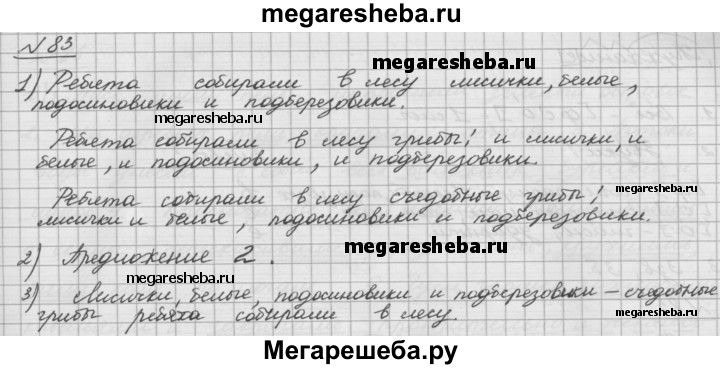 megaresheba.ru
№ 83
megaresheba.ru
1) Ребята собирали в лесу лисички, белые,
подосиновики и подберезовики.
megaresheba.ru
Ребята собирали в лесу грибы: и лисички, и
белые, и подосиновики, и подберезовики.
megaresheba.ru
Ребята собирали в лесу съедобные грибы:
лисички и белые, подосиновики и подберезовики.
megaresheba.ru
2) Предложение 2.
megaresheba.ru
3) Лисички, белые, подосиновики и подберезовики – съедобные
грибы ребята собирали в лесу.
Мегарешеба.ру